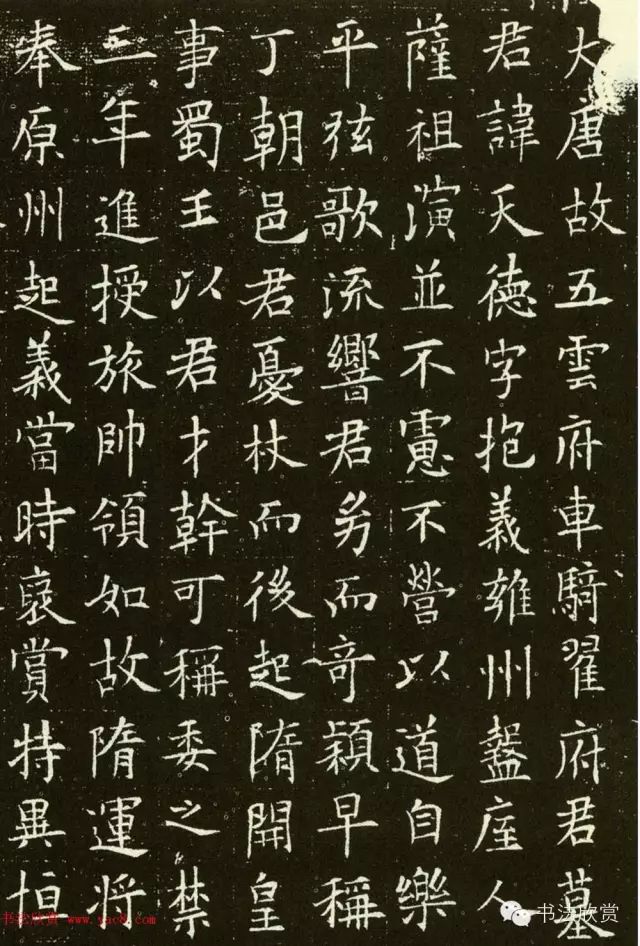 大唐故五雲府車騎翟府君墓
君諱天德字抱義雍州盩厔人
薩祖演並不慮不營以道自樂
平弦歌流響君勞而奇穎早稱
丁朝邑君憂杖而後起隋開皇
事蜀王以君才幹可稱委之禁
二年進授旅帥領如故隋運將
奉原州起義當時襃賞特異恒
书法欣赏 www.yac8.com
书法欣赏